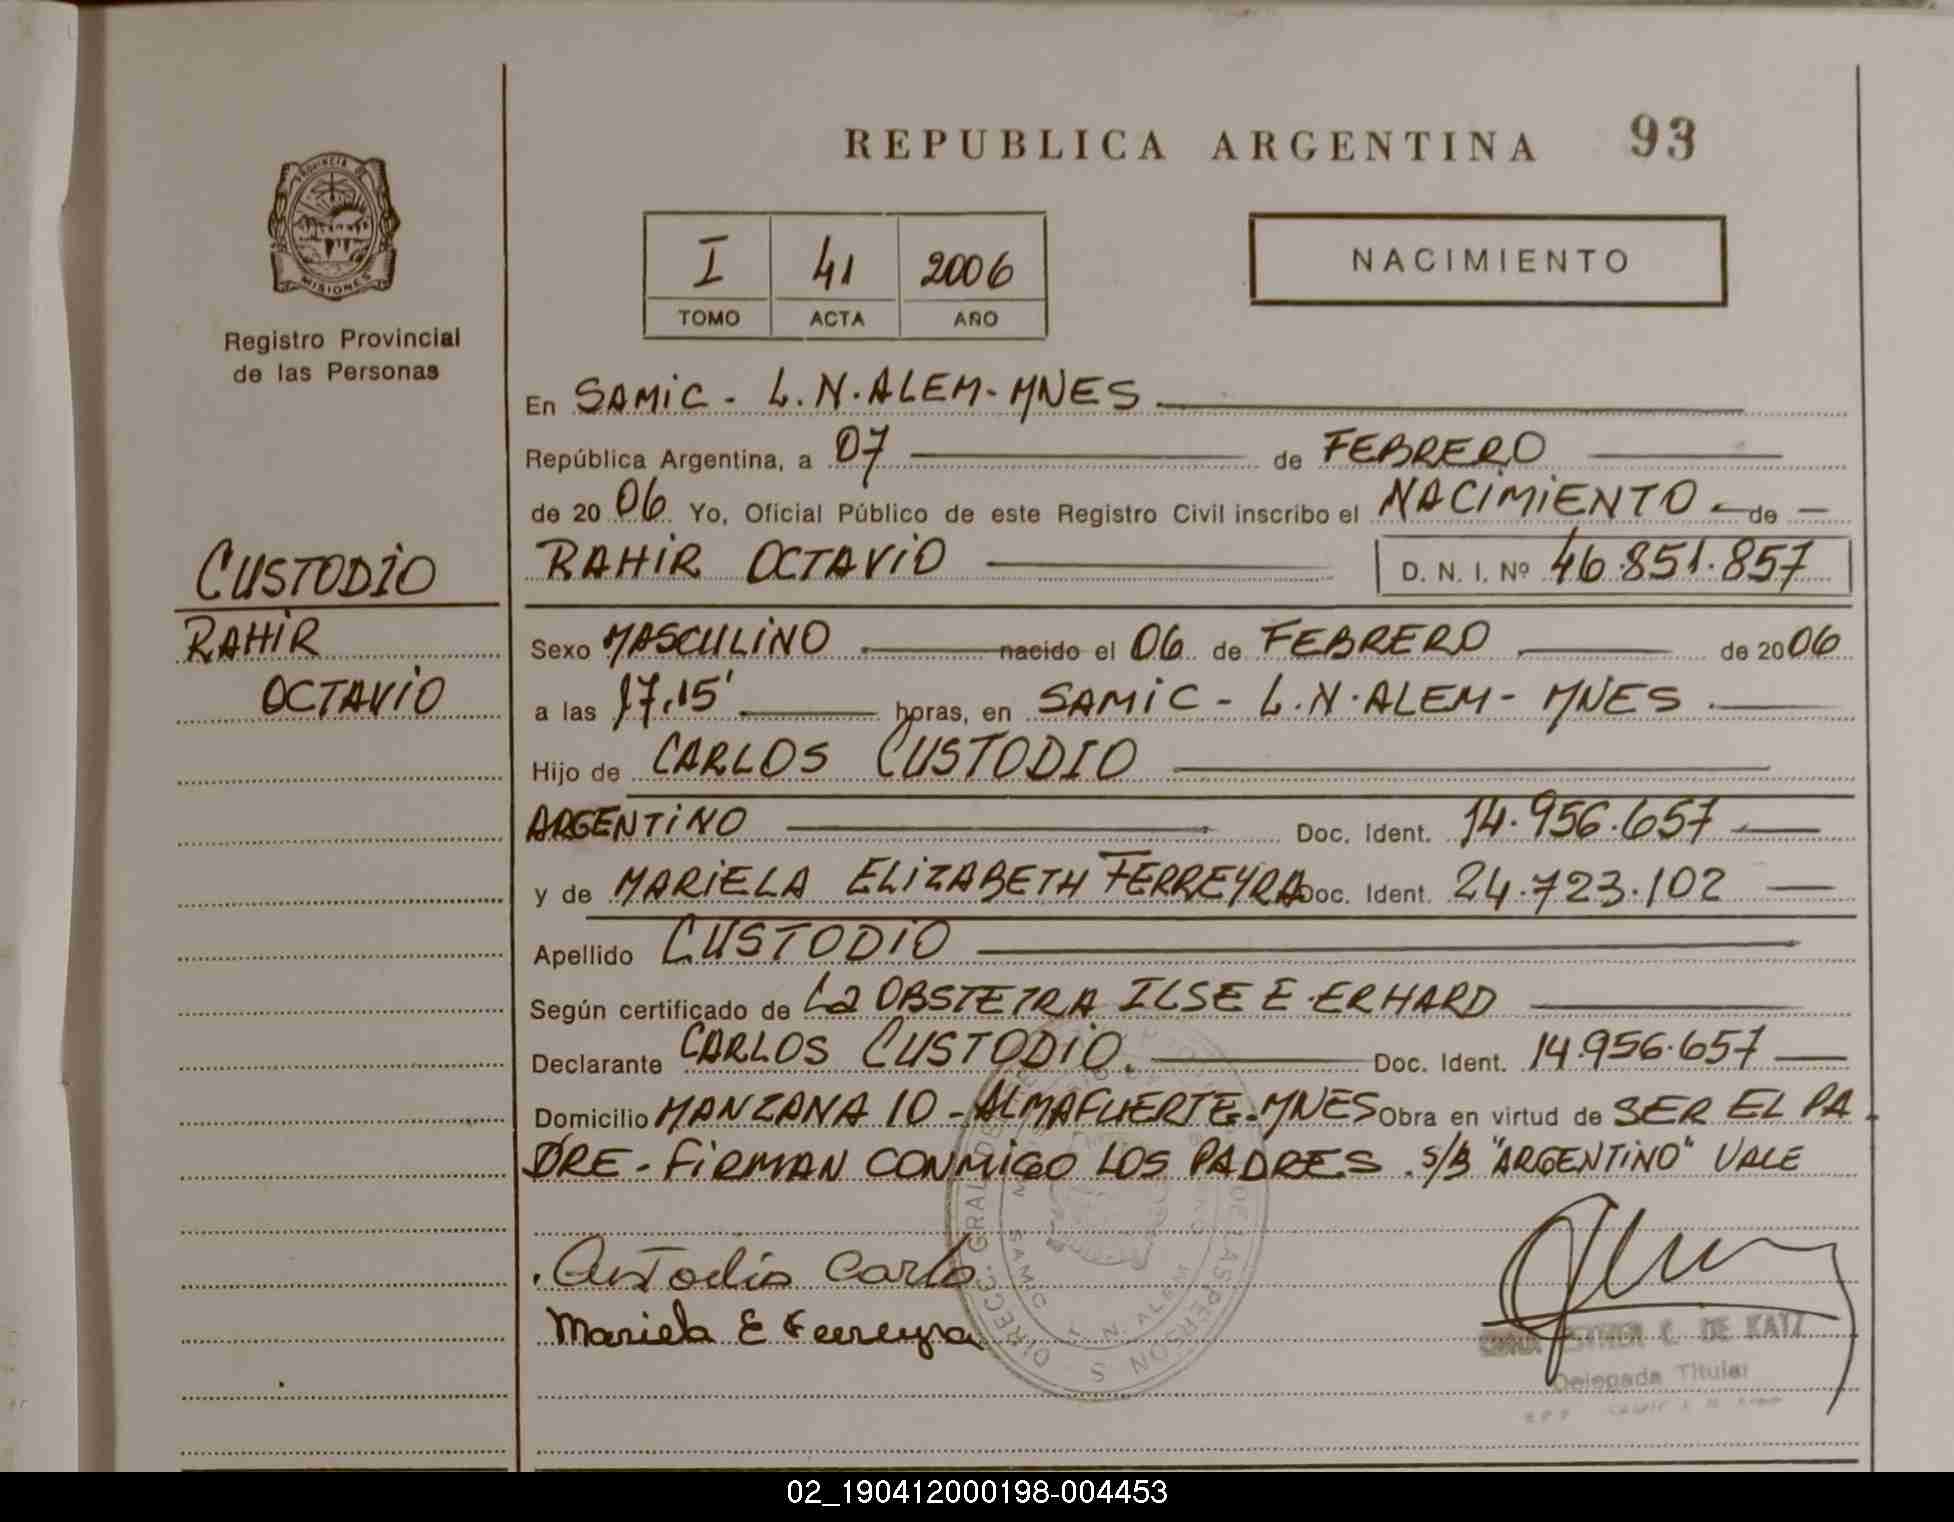 REPUBLICA ARGENTINA 93
PROVINCIA DE
MISIONES
Registro Provincial
de las Personas
I 41 2006
TOMO ACTA AÑO
NACIMIENTO
En SAMIC - L.N.ALEM-MNES
República Argentina, a 07 de FEBRERO
de 20 06 Yo, Oficial Público de este Registro Civil inscribo el NACIMIENTO de
RAHIR OCTAVIO D. N. I. Nº 46.851.857
CUSTODIO
RAHIR
OCTAVIO
Sexo MASCULINO nacido el 06 de FEBRERO de 2006
a las 17,15' horas, en SAMIC - L.N.ALEM- MNES
Hijo de CARLOS CUSTODIO
ARGENTINO Doc. Ident. 14.956.657
y de MARIELA ELIZABETH FERREYRA Doc. Ident. 24.723.102
Apellido CUSTODIO
Según certificado de La OBSTETRA ILSE E.ERHARD
Declarante CARLOS CUSTODIO. Doc. Ident. 14.956.657
Domicilio MANZANA 10 - ALMAFUERTE-MNES Obra en virtud de SER EL PA
DRE - FIRMAN CONMIGO LOS PADRES. S/B "ARGENTINO" VALE
Custodio Carlo
Mariela E Ferreyra
ESTHER C. DE KATZ
Delegada Titular
02_190412000198-004453